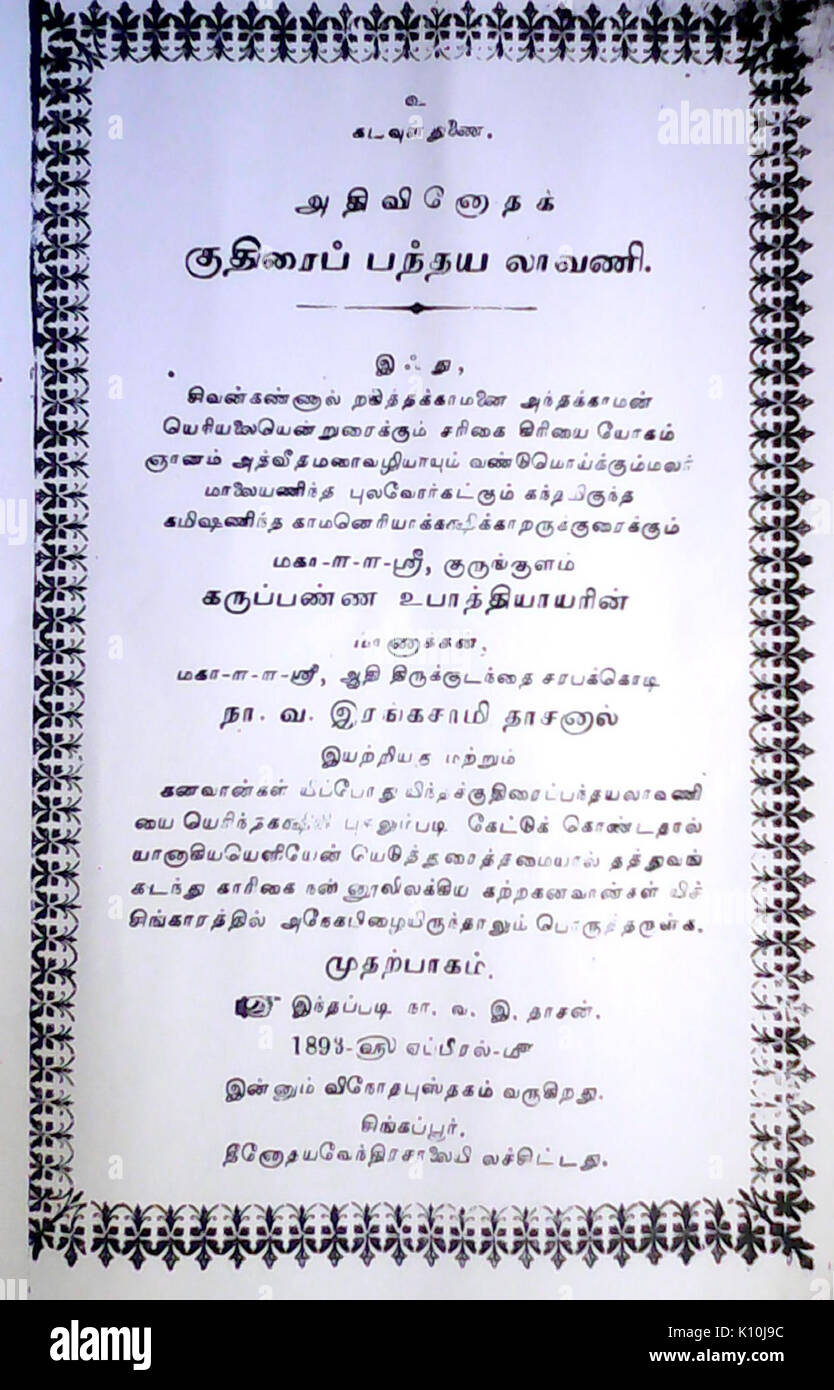 உ
கடவுள்துணை.
அதிவினோதக்
குதிரைப் பந்தய லாவணி.
இஃது,
சிவன்கண்ணால் தகித்தக்காமனை அந்தக்காமன்
யெரியலையென்றுரைக்கும் சரிகை கிரியை யோகம்
ஞானம் அத்வீதமரைவழியாயும் வண்டுமொய்க்கும்மலர்
மாலையணிந்த புலவோர்கட்கும் கந்தமிகுந்த
கமிஷணிந்த காமனெரியாக்கக்ஷிக்காறருக்குரைக்கும்
மகா-ஈ-ஈ-ஸ்ரீ, குருங்குளம்
கருப்பண்ண உபாத்தியாயரின்
மாணாக்கன்,
மகா-ஈ-ஈ-ஸ்ரீ, ஆதி திருக்குடந்தை சரபக்கொடி
நா. வ. இரங்கசாமி தாசனால்
இயற்றியது மற்றும்
கனவான்கள் யிப்போது யிந்தக்குதிரைப்பந்தயலாவணி
யை யெரிந்தகக்ஷியில் கேட்டுக் கொண்டதால்
யானாகியயெளியேன் யெடுத்துரைத்தமையால் தத்துவங்
கடந்து காரிகை நன் னூலிலக்கிய கற்றகனவான்கள் யிச்
சிங்காரத்தில் அநேகபிழையிருந்தாலும் பொருத்தருள்க.
முதற்பாகம்.
இந்தப்படி நா. வ. இ. தாசன்.
1893-௵ ஏப்பீரல்-௴
இன்னும் வினோதபுஸ்தகம் வருகிறது.
சிங்கப்பூர்.
தீனோதயவேந்திரசாலையி லச்சிட்டது.
alamy
alamy stock photo
K10J9C
www.alamy.com